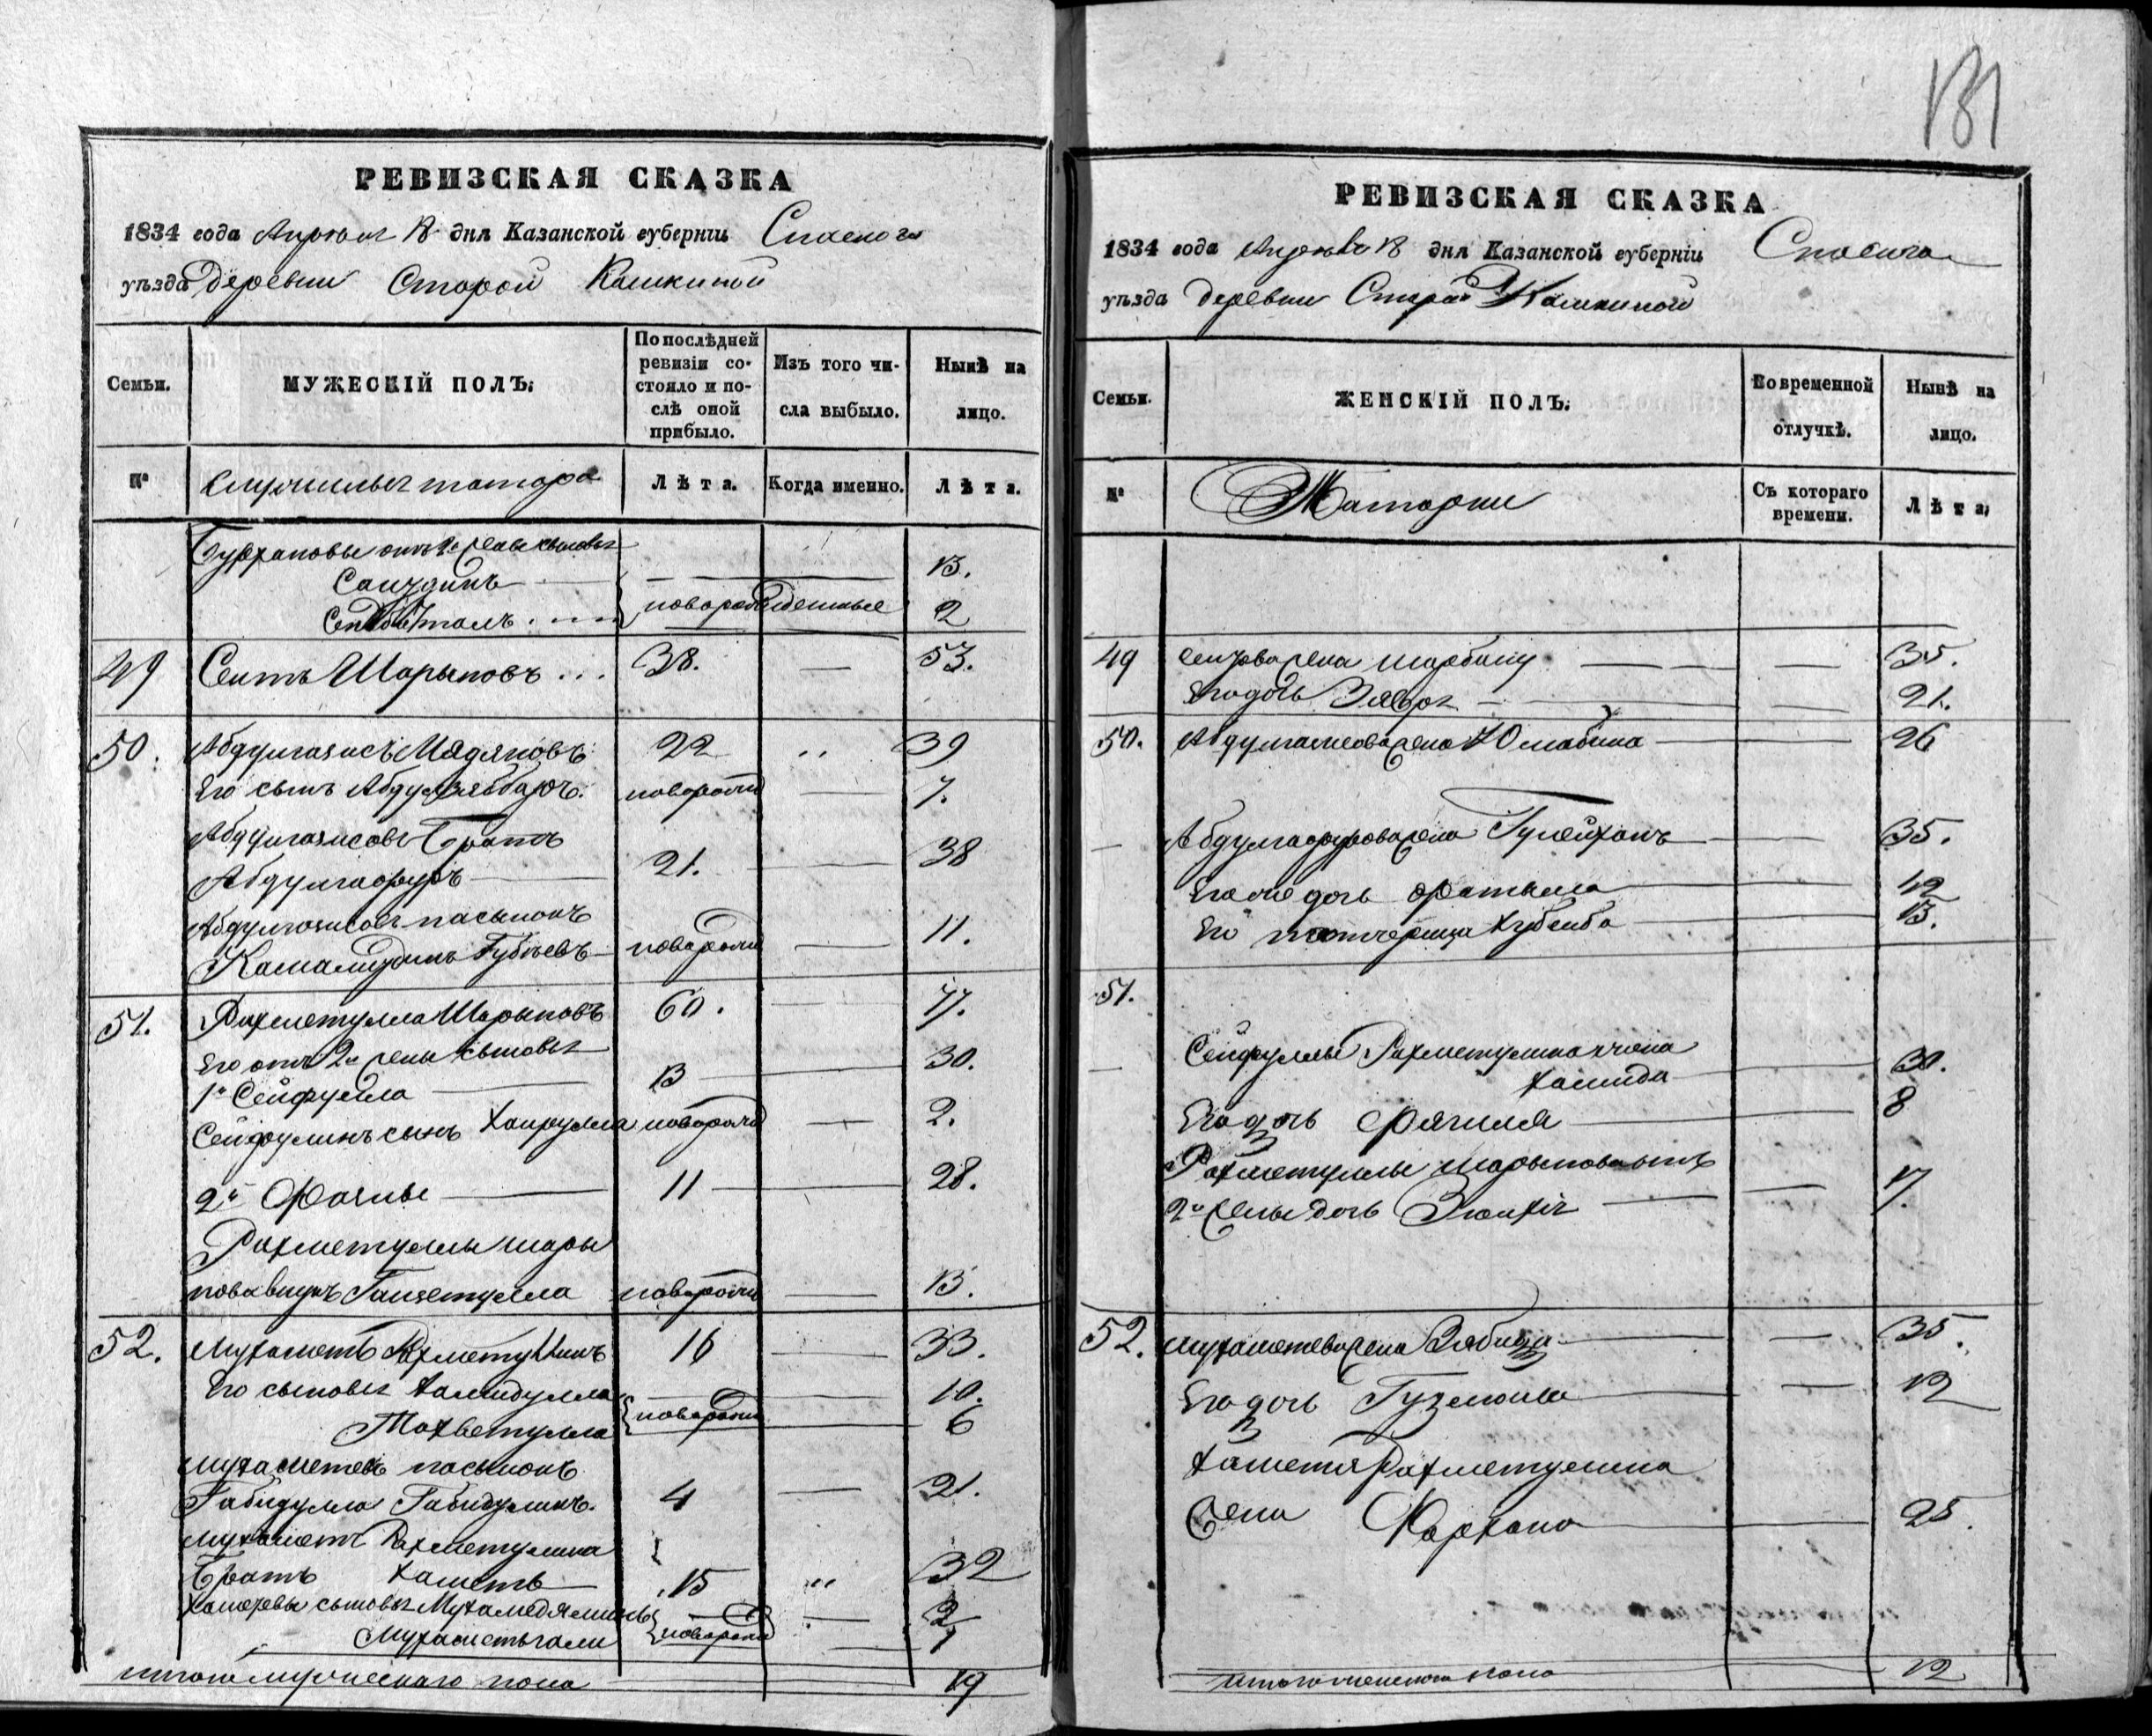 131
РЕВИЗСКАЯ СКАЗКА
1834 года Апреля 18 дня Казанской губернiи Спаскаго
уѣзда Деревни Старой Кашкиной
Семьи.
МУЖЕСКIЙ ПОЛЪ.
По послѣдней ревизiи состояло и послѣ оной прибыло.
Изъ того числа выбыло.
Нынѣ на лицо.
№
Служилыя татара
Лѣта.
Когда именно.
Лѣта.
Бурхановы отъ 2й жены сыновья
Саиудинъ 13.
новорожденные 2
49 Сеитъ Шарыповъ ... 38. — 53.
50. Абдулгазисъ Мядяповъ 22 .. 39
Его сынъ Абдулзяббаръ. новорожд — 7.
Абдулгазисовъ Братъ
Абдулгафуръ — 21. — 38
Абдулгазисовъ пасынокъ
Камалиудинъ Губеевъ новорожд — 11.
51. Рахметулла Шарыповъ 60. — 77.
Его отъ 2й жены сыновья
1й Сейфулла — 13 — 30.
Сейфулинъ сынъ Хайрулла новорожд — 2.
2й Фазлы — 11 — 28.
Рахметуллы шары
пова внукъ Гайзетулла новорожд — 13.
52. Мухаметъ Рахметуллинъ 16 — 33.
Его сыновья Хамидулла — 10.
Тохветулла новорожд 6
Мухаметевъ пасынокъ
Габидулла Габидулинъ. 4 — 21.
Мухаметъ Рахметулина
Братъ Хаметъ 15 .. 32
Хаметевы сыновья Мухамедяминъ 2
Мухаметьгали новорожд 1
итого мужескаго пола 19
РЕВИЗСКАЯ СКАЗКА
1834 года Апреля 18 дня Казанской губернiи Спаскаго
уѣзда деревни Старой Кашкиной
Семьи.
ЖЕНСКIЙ ПОЛЪ.
Во временной отлучкѣ.
Нынѣ на лицо.
№
Татарки
Съ котораго времени.
Лѣта.
49 Сеитова жена Шарбану — 35.
Его дочь — 21.
50. Абдулгазисова жена Юмабика — 26
Абдулгафурова жена Гулейханъ — 35.
Его же дочь Фатыма — 12
Его патчерица Хубейба — 13.
51.
Сейфуллы Рахметуллина жена
Хамида — 30.
Его дочь — 8
Рахметуллы Шарыпова отъ
2й жены дочь — 17.
52. Мухаметева жена — 35.
Его дочь — 12
Хаметя Рахметулина
жена — 25.
итого женскаго пола 12